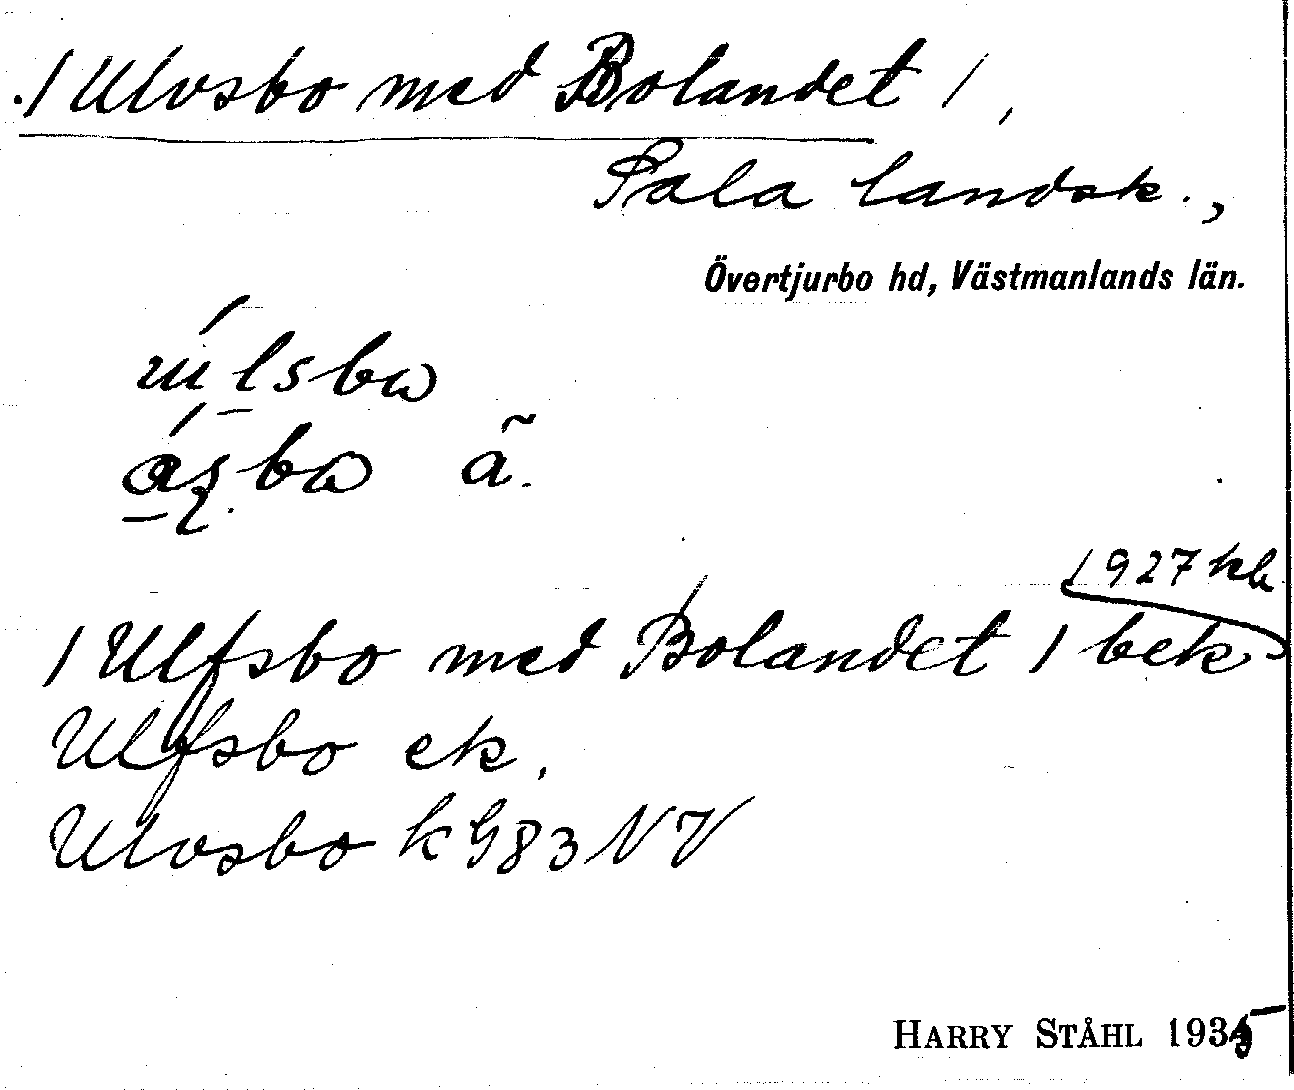 / Ulvsbo med Bolandet /,
Sala landsk.,
Övertjurbo hd, Västmanlands län.
ä.
1927 kb
/ Ulfsbo med Bolandet / bek
Ulfsbo ek.
Ulvsbo k G83 NV
HARRY STÅHL 1935